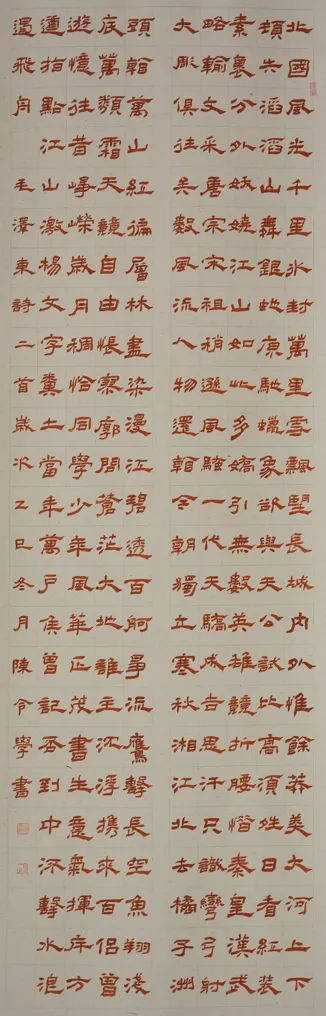 北國風光千里冰封萬里雪飄望長城內外惟餘莽莽大河上下
頓失滔滔山舞銀蛇原馳蠟象欲與天公試比高須晴日看紅裝
素裹分外妖嬈江山如此多嬌引無數英雄競折腰惜秦皇漢武
略輸文采唐宗宋祖稍遜風騷一代天驕成吉思汗只識彎弓射
大彫俱往矣數風流人物還看今朝獨立寒秋湘江北去橘子洲
頭看萬山紅徧層林盡染漫江碧透百舸爭流鷹擊長空魚翔淺
底萬類霜天競自由悵寥廓問蒼茫大地誰主沉浮攜來百侶曾
遊憶往昔崢嶸歲月稠恰同學少年風華正茂書生意氣揮斥方
遒指點江山激揚文字糞土當年萬戶侯曾記否到中流擊水浪
遏飛舟毛澤東詩二首歲次乙巳冬月陳令學書